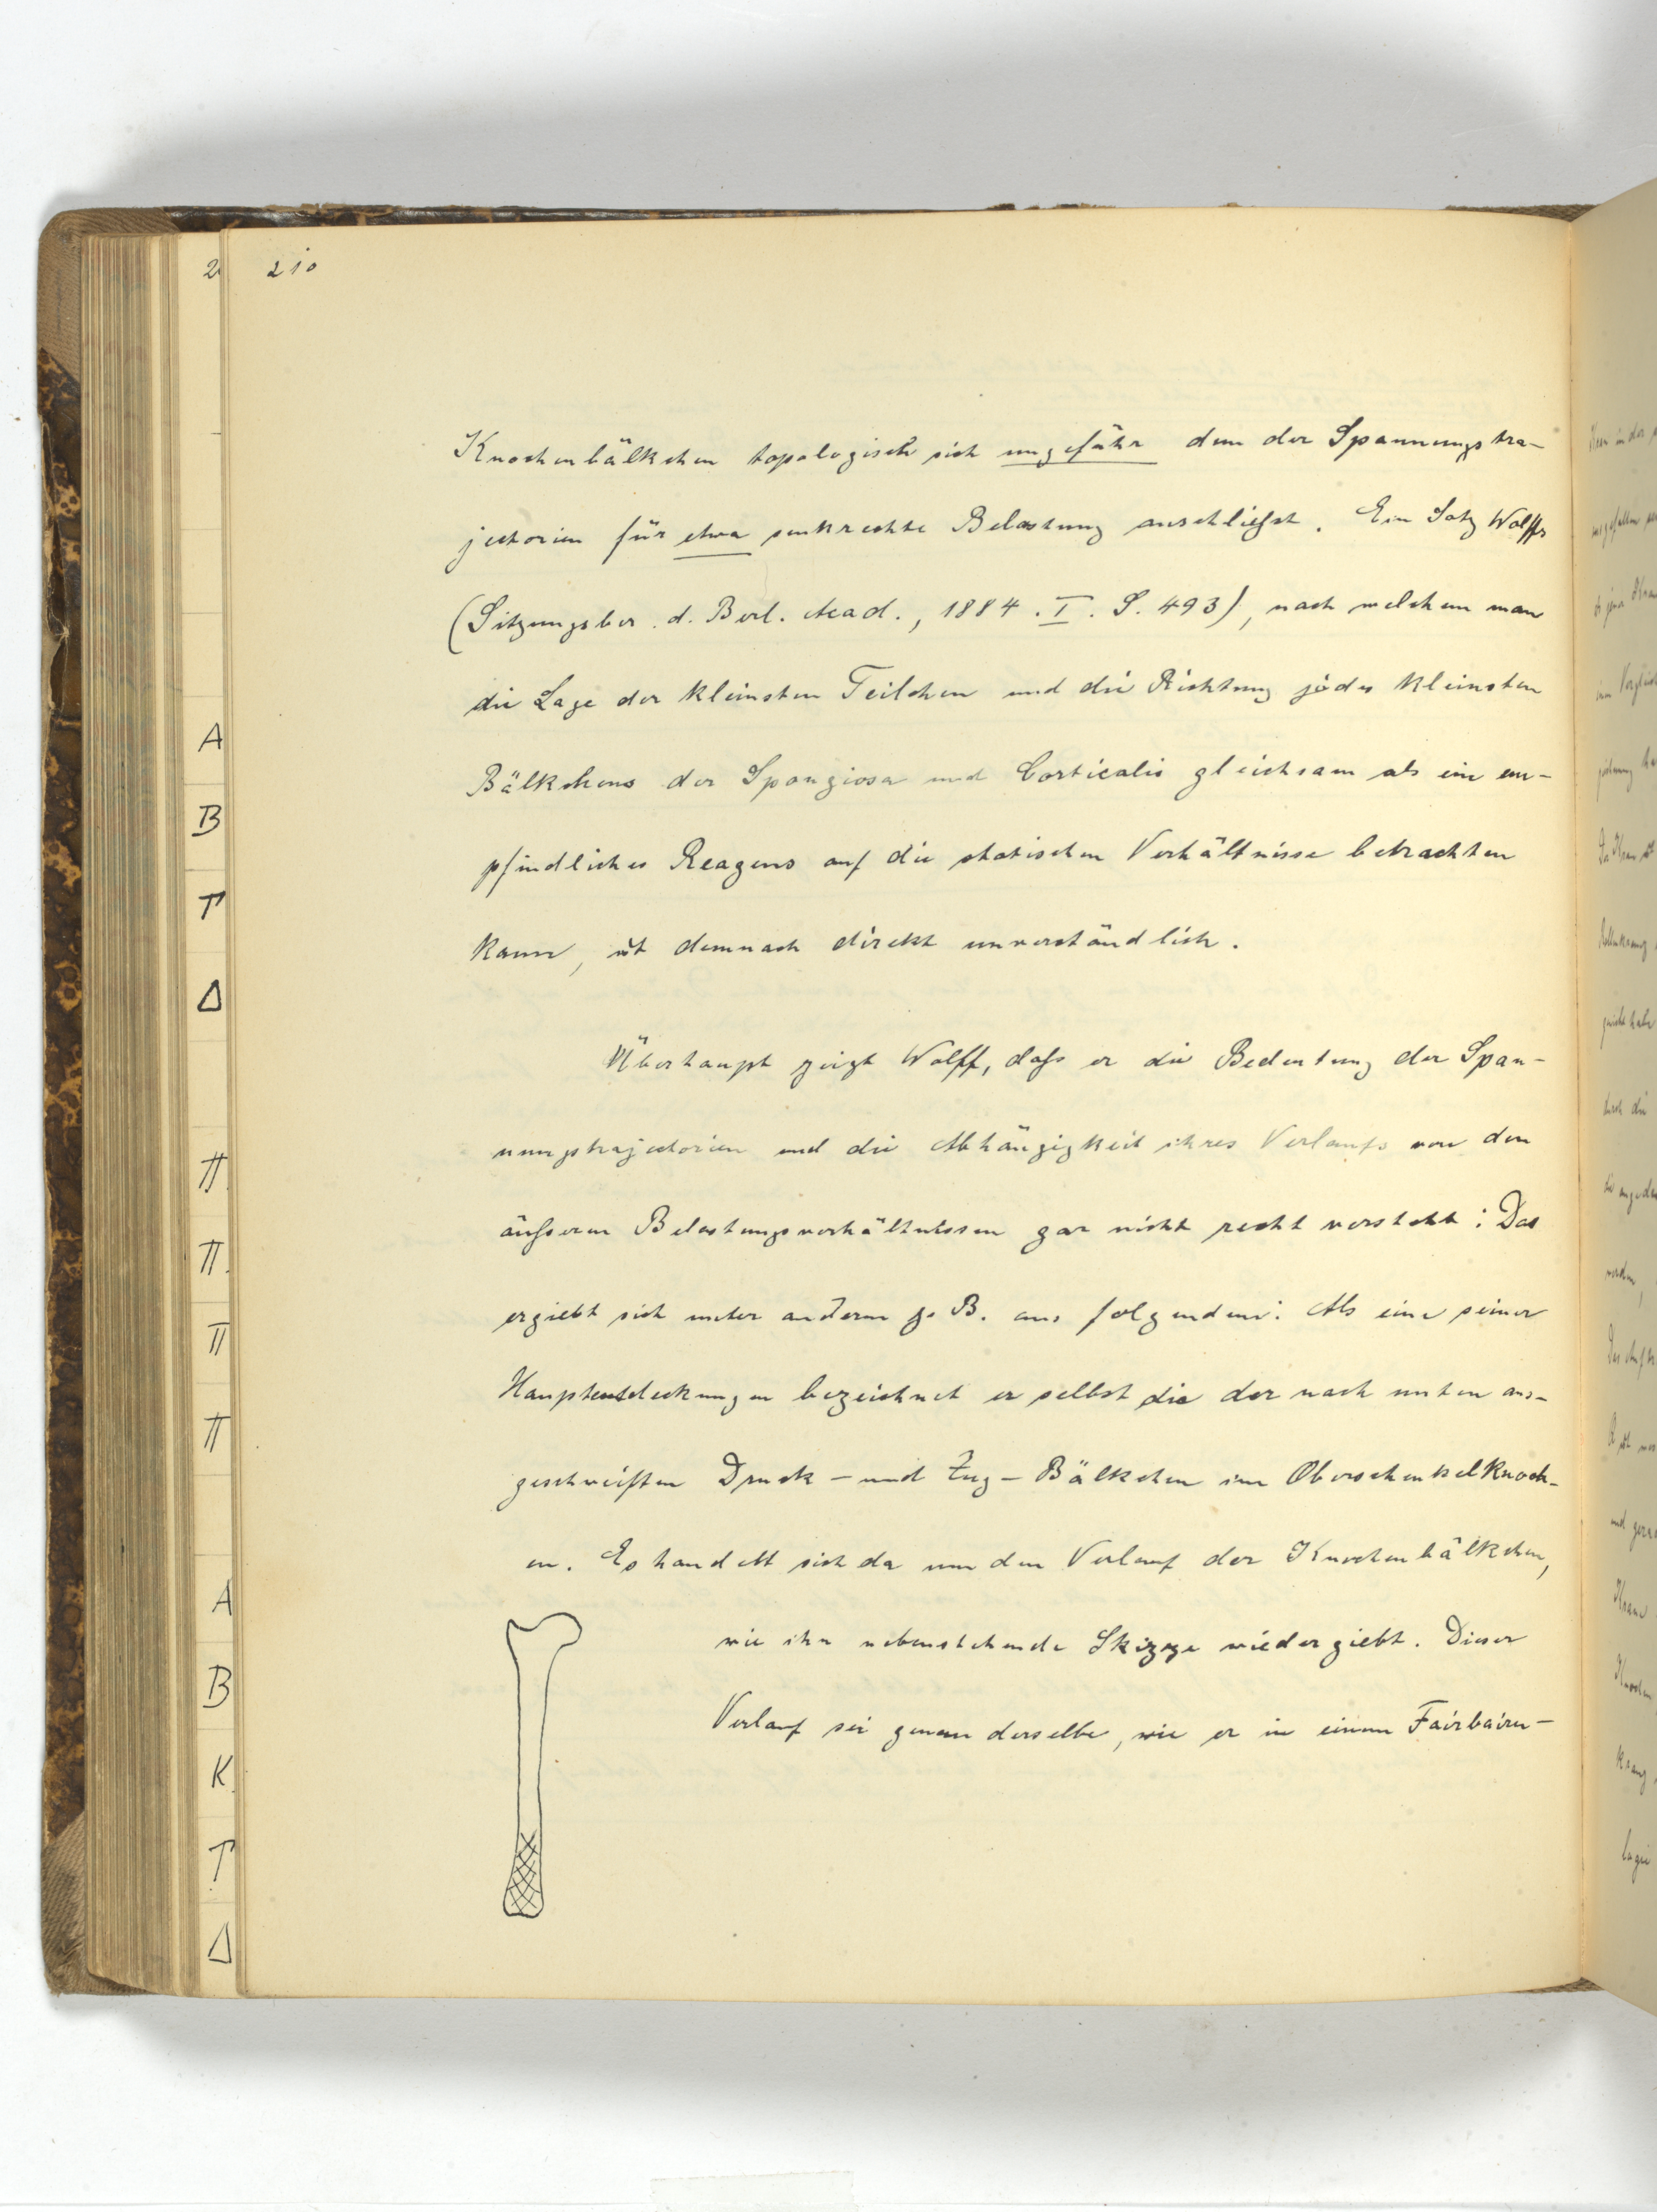 210
Knochenbälkchen topologisch sich ungefähr dem der Spannungstra-
jectorien für etwa senkrechte Belastung anschließt. Ein Satz Wolffs
(Sitzungsber. d. Berl. Acad., 1884. I. S. 493), nach welchem man
die Lage der kleinsten Teilchen und die Richtung jedes kleinsten
Bälkchens der Spongiosa und Corticalis gleichsam als ein em-
pfindliches Reagens auf die statischen Verhältnisse betrachten
kann, ist demnach direkt unverständlich.
Überhaupt zeigt Wolff, daß er die Bedeutung der Span-
nungstrajectorien und die Abhängigkeit ihres Verlaufs von den
äußeren Belastungsverhältnissen gar nicht recht versteht: Das
ergiebt sich unter anderm z. B. aus folgendem: Als eine seiner
Hauptentdeckungen bezeichnet er selbst die der nach unten aus-
geschweiften Druck- und Zug-Bälkchen im Oberschenkelknoch-
en. Es handelt sich da um den Verlauf der Knochenbälkchen,
wie ihn nebenstehende Skizze wiedergiebt. Dieser
Verlauf sei genau derselbe, wie er in einem Fairbairn-
A
B
Γ
Δ
π
π
π
π
A
B
K
Γ
Δ